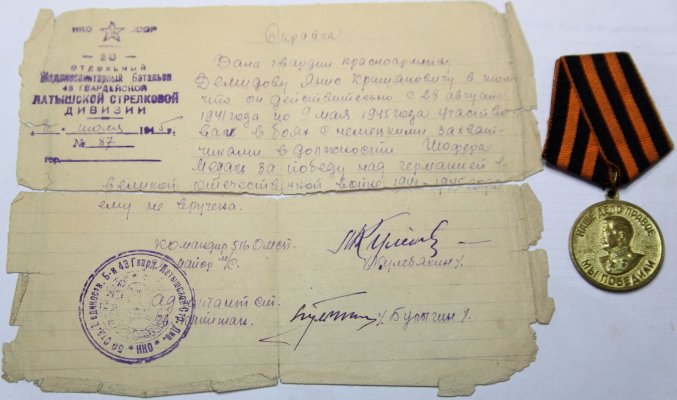 НКО СССР
ОТДЕЛЬНЫЙ
Медикосанитарный Батальон
43 ГВАРДЕЙСКОЙ
ЛАТЫШСКОЙ СТРЕЛКОВОЙ
ДИВИЗИИ
июля 1945 г.
№ 87
гор.
Справка
Дана гвардии красноармейцу
Демидову Яшо в том
что он действительно с 28 августа
1941 года по 9 мая 1945 года участво
вал в боях с немецкими захват-
чиками в должности Шофера
Медаль за победу над германией в
великой отечественной войне 1941-1945 года
ему не вручена.
Командир ОМСБ
майор м/с.
/Кулевакин/
Адъютант ст.
капитан
/Булыгин/
НАШЕ ДЕЛО ПРАВОЕ
МЫ ПОБЕДИЛИ